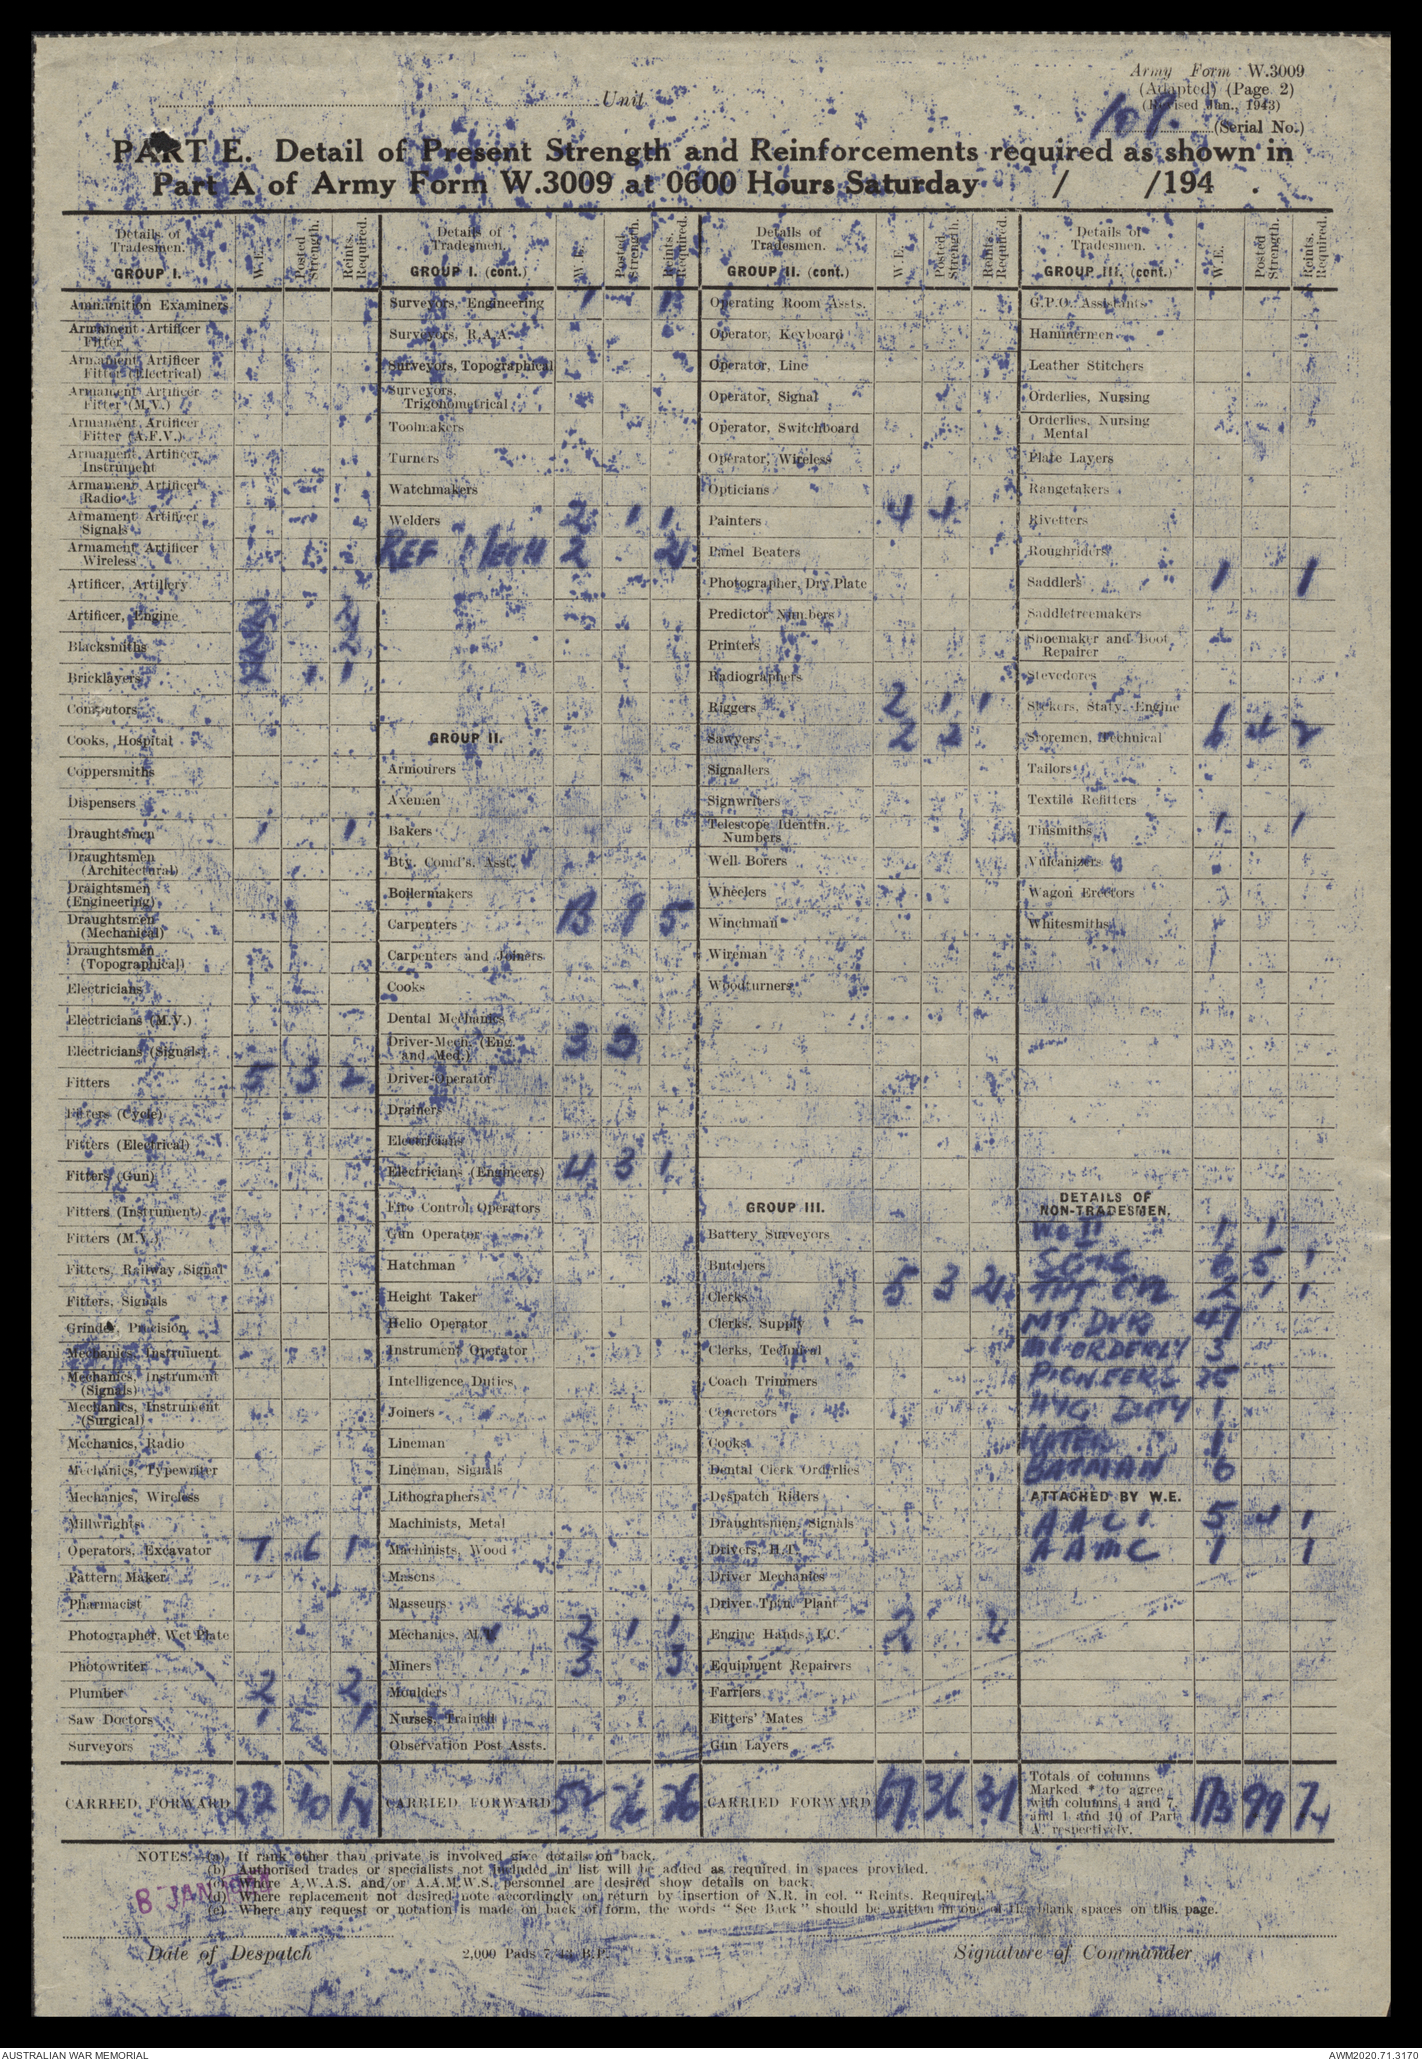 Army Form W.3009
(Adapted) (Page 2)
(Revised Jan., 1943)
Unit
109. (Serial No.)
PART E. Detail of Present Strength and Reinforcements required as shown in
Part A of Army Form W.3009 at 0600 Hours Saturday / /194 .
Details of Tradesmen. GROUP I. W.E. Posted Strength. Reints. Required.
Ammunition Examiners
Armament Artificer Fitter
Armament Artificer Fitter (Electrical)
Armament Artificer Fitter (M.V.)
Armament Artificer Fitter (A.F.V.)
Armament Artificer Instrument
Armament Artificer Radio
Armament Artificer Signals
Armament Artificer Wireless
Artificer, Artillery
Artificer, Engine
Blacksmiths 2
Bricklayers 2 1 1
Computors
Cooks, Hospital
Coppersmiths
Dispensers
Draughtsmen 1 1
Draughtsmen (Architectural)
Draughtsmen (Engineering)
Draughtsmen (Mechanical)
Draughtsmen (Topographical)
Electricians
Electricians (M.V.)
Electricians (Signals)
Fitters 5 3 2
Fitters (Cycle)
Fitters (Electrical)
Fitters (Gun)
Fitters (Instrument)
Fitters (M.V.)
Fitters, Railway Signal
Fitters, Signals
Grinder, Precision
Mechanics, Instrument
Mechanics, Instrument (Signals)
Mechanics, Instrument (Surgical)
Mechanics, Radio
Mechanics, Typewriter
Mechanics, Wireless
Millwrights
Operators, Excavator 7 6 1
Pattern Maker
Pharmacist
Photographer, Wet Plate
Photowriter
Plumber 2 2
Saw Doctors 1 1
Surveyors
CARRIED FORWARD 22 10
Details of Tradesmen. GROUP I. (cont.) W.E. Posted Strength. Reints. Required.
Surveyors, Engineering 1 1
Surveyors, R.A.A.
Surveyors, Topographical
Surveyors, Trigonometrical
Toolmakers
Turners
Watchmakers
Welders 2 1 1
REF MECH 2 2
GROUP II.
Armourers
Axemen
Bakers
Bty. Comd's. Asst.
Boilermakers
Carpenters 13 9 5
Carpenters and Joiners
Cooks
Dental Mechanics
Driver-Mech. (Eng. and Med.) 3 3
Driver-Operator
Drainers
Electricians
Electricians (Engineers) 4 3 1
Fire Control Operators
Gun Operator
Hatchman
Height Taker
Helio Operator
Instrument Operator
Intelligence Duties
Joiners
Lineman
Lineman, Signals
Lithographers
Machinists, Metal
Machinists, Wood
Masons
Masseurs
Mechanics, M.V 2 1 1
Miners 3 3
Moulders
Nurses, Trained
Observation Post Assts.
CARRIED FORWARD 52 26 26
Details of Tradesmen. GROUP II. (cont.) W.E. Posted Strength. Reints. Required.
Operating Room Assts.
Operator, Keyboard
Operator, Line
Operator, Signal
Operator, Switchboard
Operator, Wireless
Opticians
Painters 4 4
Panel Beaters
Photographer, Dry Plate
Predictor Numbers
Printers
Radiographers
Riggers 2 1 1
Sawyers 2 2
Signallers
Signwriters
Telescope Identfn. Numbers
Well Borers
Wheelers
Winchman
Wireman
Woodturners
GROUP III.
Battery Surveyors
Butchers
Clerks 5 3 2
Clerks, Supply
Clerks, Technical
Coach Trimmers
Concretors
Cooks
Dental Clerk Orderlies
Despatch Riders
Draughtsmen, Signals
Drivers, H.T.
Driver Mechanics
Driver Tptn. Plant
Engine Hands, I.C. 2 2
Equipment Repairers
Farriers
Fitters' Mates
Gun Layers
CARRIED FORWARD 67 36 31
Details of Tradesmen. GROUP III. (cont.) W.E. Posted Strength. Reints. Required.
G.P.O. Assistants
Hammermen
Leather Stitchers
Orderlies, Nursing
Orderlies, Nursing Mental
Plate Layers
Rangetakers
Rivetters
Roughriders
Saddlers 1 1
Saddletreemakers
Shoemaker and Boot Repairer
Stevedores
Stokers, Staty. Engine
Storemen, Technical 6 4 2
Tailors
Textile Refitters
Tinsmiths 1 1
Vulcanizers
Wagon Erectors
Whitesmiths
DETAILS OF NON-TRADESMEN.
WO II 1 1
SGTS 6 5 1
CPL 2 1 1
MT DVR 47
ORDERLY 3
PIONEERS 25
HYG DUTY 1
WATER 1
BATMAN 6
ATTACHED BY W.E.
5 4 1
AAMC 1 1
Totals of columns Marked * to agree with columns 4 and 7 and 1 and 10 of Part A, respectively. 173 99 74
NOTES.—(a) If rank other than private is involved give details on back.
(b) Authorised trades or specialists not included in list will be added as required in spaces provided.
(c) Where A.W.A.S. and/or A.A.M.W.S. personnel are desired show details on back.
(d) Where replacement not desired note accordingly on return by insertion of N.R. in col. "Reints. Required."
(e) Where any request or notation is made on back of form, the words "See Back" should be written in one of the blank spaces on this page.
8 JAN
Date of Despatch
2,000 Pads 7/43 B.P.
Signature of Commander
AUSTRALIAN WAR MEMORIAL
AWM2020.71.3170